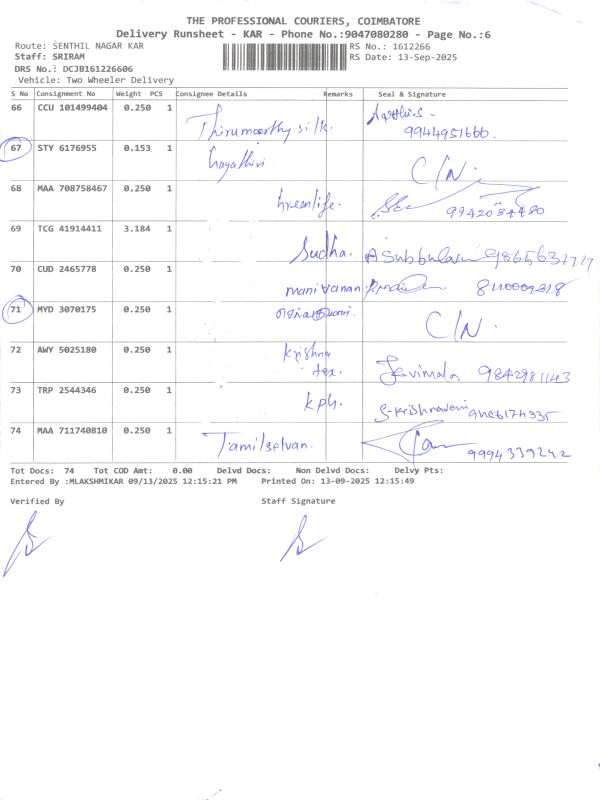 THE PROFESSIONAL COURIERS, COIMBATORE
Delivery Runsheet - KAR - Phone No.:9047080280 - Page No.:6
Route: SENTHIL NAGAR KAR RS No.: 1612266
Staff: SRIRAM RS Date: 13-Sep-2025
DRS No.: DCJB161226606
Vehicle: Two Wheeler Delivery
S No Consignment No Weight PCS Consignee Details Remarks Seal & Signature
66 CCU 101499404 0.250 1 Thirumoorthy silk. 9944951666.
67 STY 6176955 0.153 1 Gayathiri C/N
68 MAA 708758467 0.250 1 Greenlife.
69 TCG 41914411 3.184 1 Sudha. A Subbulaxmi
70 CUD 2465778 0.250 1 manivanan
71 MYD 3070175 0.250 1 C/N.
72 AWY 5025180 0.250 1 Krishna tex. 9842981143
73 TRP 2544346 0.250 1 kph. S-Krishnaveni
74 MAA 711740810 0.250 1 Tamilselvan. 9994339242
Tot Docs: 74 Tot COD Amt: 0.00 Delvd Docs: Non Delvd Docs: Delvy Pts:
Entered By :MLAKSHMIKAR 09/13/2025 12:15:21 PM Printed On: 13-09-2025 12:15:49
Verified By Staff Signature